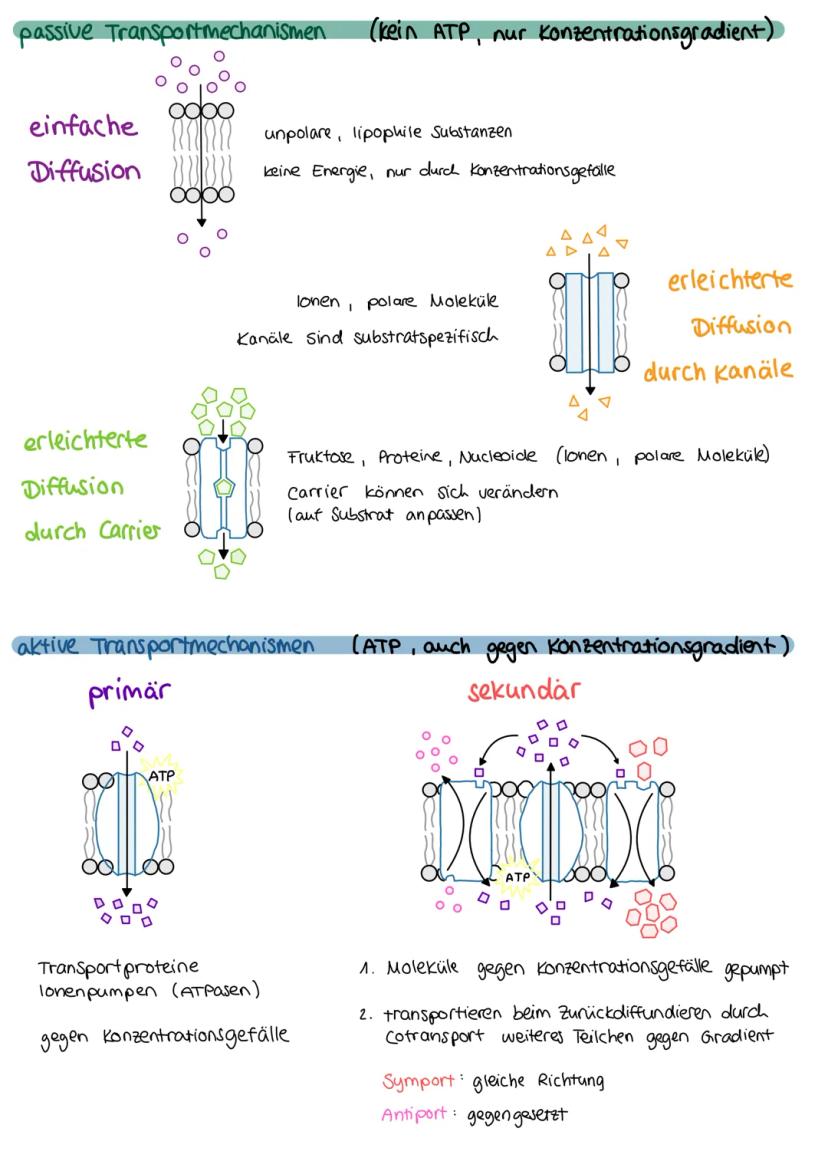 passive Transportmechanismen (kein ATP, nur Konzentrationsgradient)
einfache
Diffusion
unpolare, lipophile Substanzen
keine Energie, nur durch Konzentrationsgefälle
Ionen, polare Moleküle
Kanäle sind substratspezifisch
erleichterte
Diffusion
durch Kanäle
erleichterte
Diffusion
durch Carrier
Fruktose, Proteine, Nucleoide (Ionen, polare Moleküle)
Carrier können sich verändern
(auf Substrat anpassen)
aktive Transportmechanismen (ATP, auch gegen Konzentrationsgradient)
primär
ATP
Transportproteine
Ionenpumpen (ATPasen)
gegen Konzentrationsgefälle
sekundär
ATP
1. Moleküle gegen Konzentrationsgefälle gepumpt
2. transportieren beim Zurückdiffundieren durch
Cotransport weiteres Teilchen gegen Gradient
Symport: gleiche Richtung
Antiport: gegengesetzt